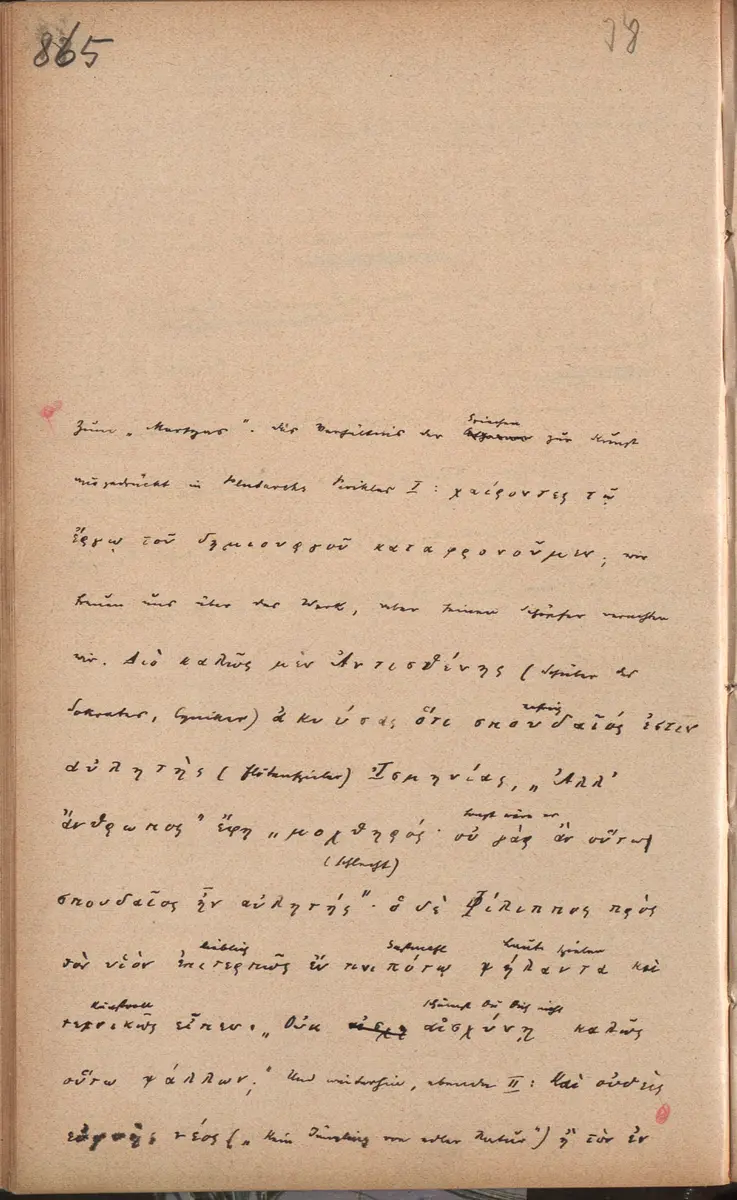 865
78
Griechen
Zum „Marsyas“. Das Verhältnis der zur Kunst
ausgedrückt in Plutarchs Perikles I: χαίροντες τῷ
ἔργῳ τοῦ δημιουργοῦ καταφρονοῦμεν; wir
freuen uns über das Werk, aber seinen Schöpfer verachten
wir. Διὸ καλῶς μὲν Ἀντισθένης (Schüler des
Sokrates, Cyniker) ἀκούσας ὅτι σπουδαῖός ἐστιν
αὐλητὴς (Flötenspieler) Ἰσμηνίας, „Ἀλλ’
sonst wäre er
ἄνθρωπος“ ἔφη „μοχθηρός· οὐ γὰρ ἂν οὕτω
(schlecht)
σπουδαῖος ἦν αὐλητής“· ὁ δὲ Φίλιππος πρὸς
lieblich Laute spielen
τὸν υἱὸν ἐπιτερπῶς ἔν τινι πότῳ ψήλαντα καὶ
kunstvoll schämst Du Dich nicht
τεχνικῶς εἶπεν· „Οὐκ αἰσχύνῃ καλῶς
οὕτω ψάλλων;“ Und weiterhin, ebenda II: Καὶ οὐθεὶς
εὐφυὴς νέος („Kein Jüngling von edler Natur“) ἢ τὸν ἐν